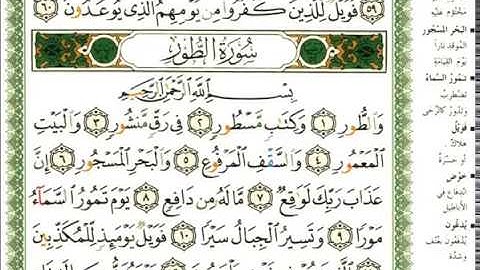 فَوَيْلٌ لِّلَّذِينَ كَفَرُوا۟ مِن يَوْمِهِمُ ٱلَّذِى يُوعَدُونَ ٦٠
سُورَةُ الطُّورِ
بِسْمِ ٱللَّهِ ٱلرَّحْمَٰنِ ٱلرَّحِيمِ
وَٱلطُّورِ ١ وَكِتَٰبٍ مَّسْطُورٍ ٢ فِى رَقٍّ مَّنشُورٍ ٣ وَٱلْبَيْتِ
ٱلْمَعْمُورِ ٤ وَٱلسَّقْفِ ٱلْمَرْفُوعِ ٥ وَٱلْبَحْرِ ٱلْمَسْجُورِ ٦ إِنَّ
عَذَابَ رَبِّكَ لَوَٰقِعٌ ٧ مَّا لَهُۥ مِن دَافِعٍ ٨ يَوْمَ تَمُورُ ٱلسَّمَآءُ
مَوْرًا ٩ وَتَسِيرُ ٱلْجِبَالُ سَيْرًا ١٠ فَوَيْلٌ يَوْمَئِذٍ لِّلْمُكَذِّبِينَ
البَحْرِ المَسْجُور
المُوقَدِ نَاراً
يَوْمَ القِيَامَةِ
تَمُورُ السَّمَاءُ
تَضْطَرِبُ
وَتَدُورُ كَالرَّحَى
فَوَيْلٌ
هَلَاكٌ
أو حَسْرَةٌ
خَوْضٍ
انْدِفَاعٍ في
الأَبَاطِيلِ
يُدَعُّونَ
يُدْفَعُونَ بِعُنْفٍ
وَشِدَّةٍ